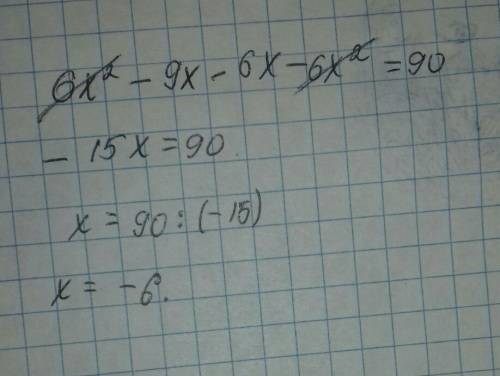 6x² - 9x - 6x - 6x² = 90
- 15x = 90.
x = 90 : (-15)
x = -6.